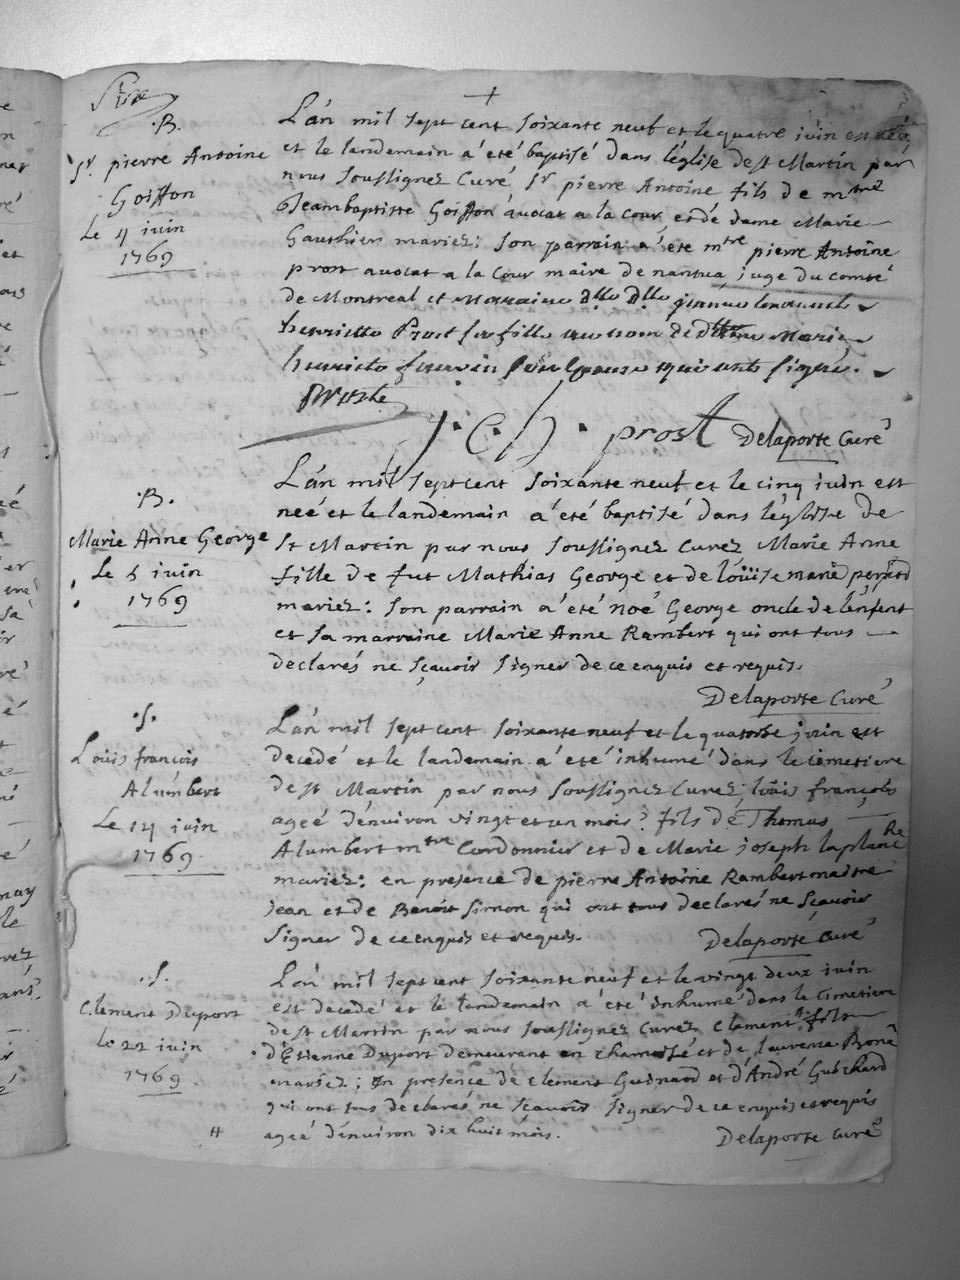 .B.
Sr. pierre Antoine
Goiffon
Le 4 juin
1769
L'án mil sept cent soixante neuf et le quatre iuin est néé
et le landemain á été baptisé dans l'église de st Martin par
nous soussignez Curé Sr pierre Antoine fils de mtre
Jeambaptiste Goiffon avocat a la Cour et dé dame Marie
Gauthier mariez: son parrain a été mtre pierre Antoine
prost avocat a la Cour maire de nantua juge du comté
de Montreal et Marraine dlle dlle
henriette Prost sa fille au nom de Marie
henriete qui ont signé.
J. C. prost Delaporte Curé
.B.
Marie Anne George
Le 5 iuin
1769
L'án mil sept cent soixánte neuf et le cinq iuin est
neé et le landemain á été baptisé dans l'église de
st Martin par nous soussignez Curez Marie Anne
fille de fut Mathias George et de loüise marie perard
mariez: son parrain á été noé George oncle de l'enfent
et sa marraine Marie Anne Rambert qui ont tous
declarés ne sçavoir signer de ce enquis et requis.
Delaporte Curé
.S.
Loüis françois
Alumbert
Le 14 iuin
1769
L'án mil sept cent soixante neuf et le quatorse juin est
decedé et le landemain á été inhumé dans le cemetiere
de st Martin par nous soussignez Curez loüis françois
ageé d'environ vingt et un mois? fils de Thomas
Alumbert mtre Cordonnier et de Marie joseph laplanche
mariez: en presence de pierre Antoine Rambert maitre
jean et de Benoit Simon qui ont tous declarés ne sçavoir
signer de ce enquis et requis.
Delaporte Curé
.S.
Clement Duport
Le 22 iuin
1769
L'án mil sept cent soixante neuf et le vingt deux iuin
est decedé et le landemain á été inhumé dans le Cimetiere
de st Martin par nous soussignez Curez Clement # fils
d'Etienne Duport demeurant en chamoisé et de laurence Bonê
mariez; En presence de clement Guinard et d'André Guichard
qui ont tous declarés ne sçavoir signer de ce enquis et requis
# ageé d'environ dix huit mois.
Delaporte Curé